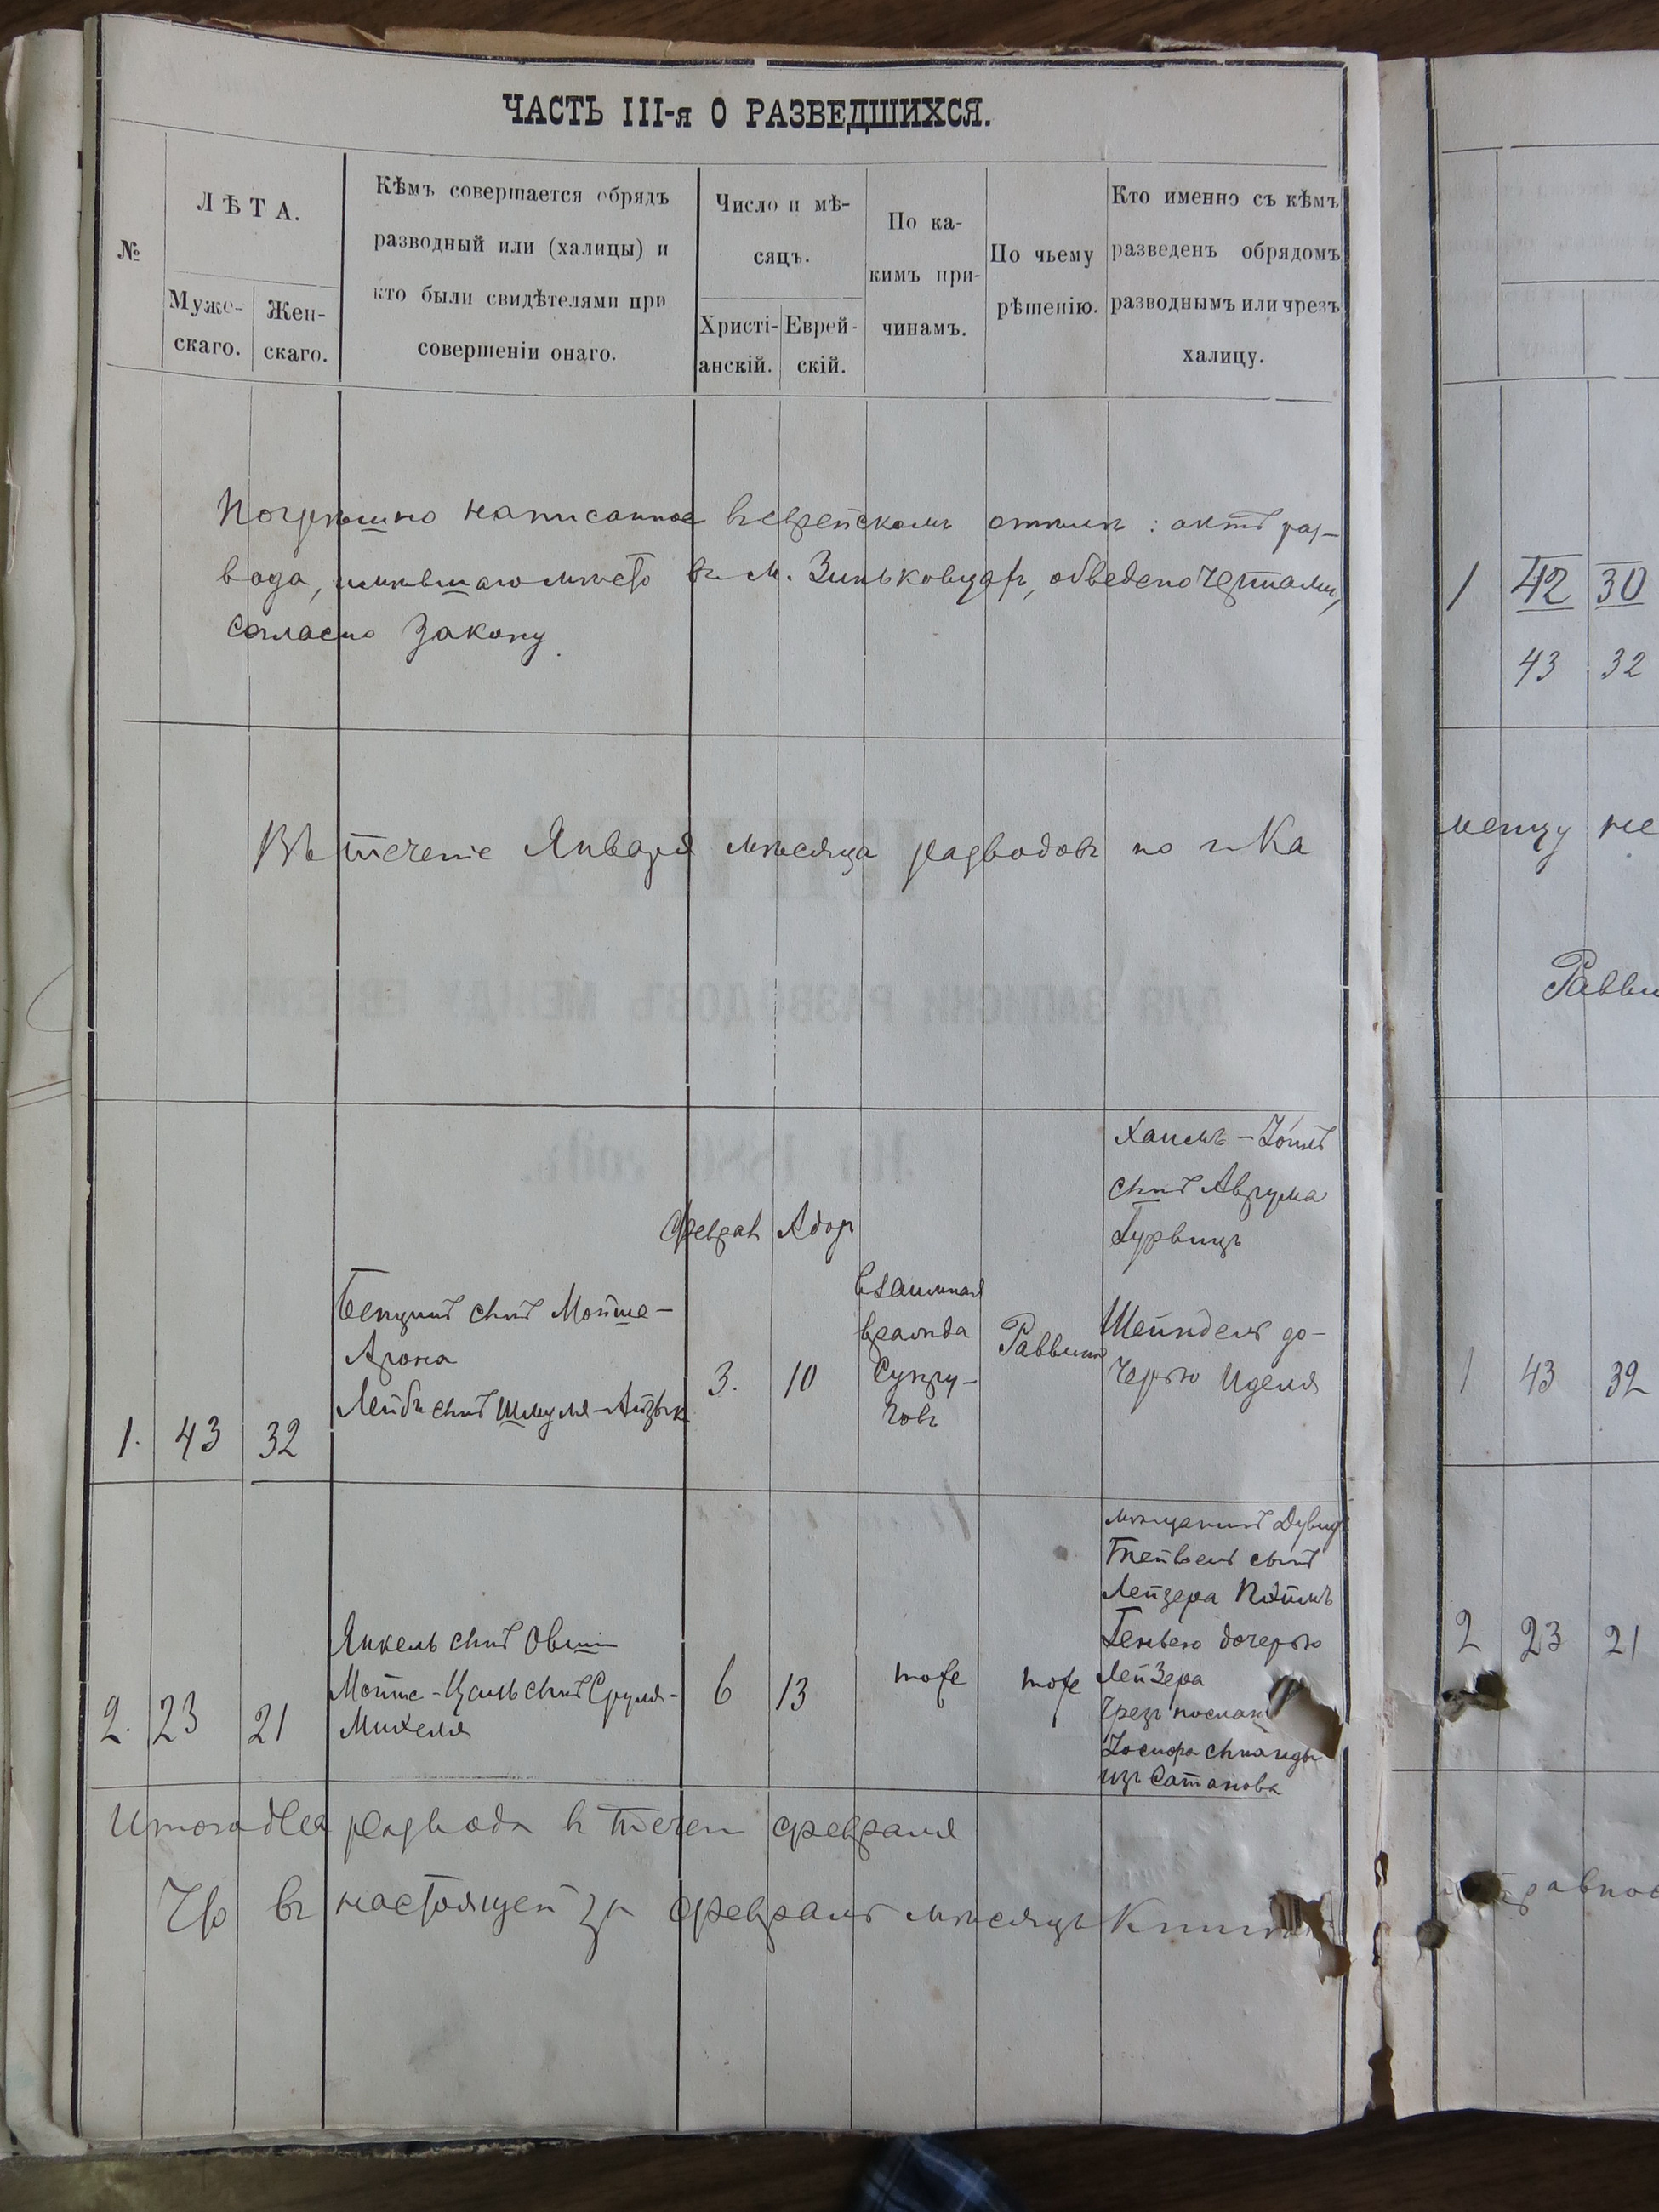 ЧАСТЬ III-я О РАЗВЕДШИХСЯ.
№
ЛѢТА.
Муже-
скаго.
Жен-
скаго.
Кѣмъ совершается обрядъ
разводный или (халицы) и
кто были свидѣтелями при
совершеніи онаго.
Число и мѣ-
сяцъ.
Христі-
анскій.
Еврей-
скій.
По ка-
кимъ при-
чинамъ.
По чьему
рѣшенію.
Кто именно съ кѣмъ
разведенъ обрядомъ
разводнымъ или чрезъ
халицу.
Погрѣшно написанное въ еврейскомъ : актъ раз-
вода, имѣвшаго мѣсто въ м. Зиньковцахъ, обведено чертами,
согласно закону.
Въ теченіе Января мѣсяца разводовъ не
Феврал Адор
1. 43 32
Бенціонъ сынъ Мойше-
Арона
Лейбъ сынъ Шмуля-Айзык
3. 10
взаимная
вражда
супру-
говъ
Раввина
Хаимъ-
сынъ Аврума
Гурвицъ
Шейндель до-
черью Иделя
2. 23 21
Янкель сынъ Овши
Мойше- сынъ Сруля-
Михеля
6 13
тоже
тоже
мѣщанинъ Дувид
сынъ
Лейзера
дочерью
Лейзера
чрезъ послан
Іосифа
изъ Сатанова
Итого два развода въ течен февраля
Что въ настоящей за февраль мѣсяцъ
1 42 30
43 32
между не
Равви
1 43 32
2 23 21